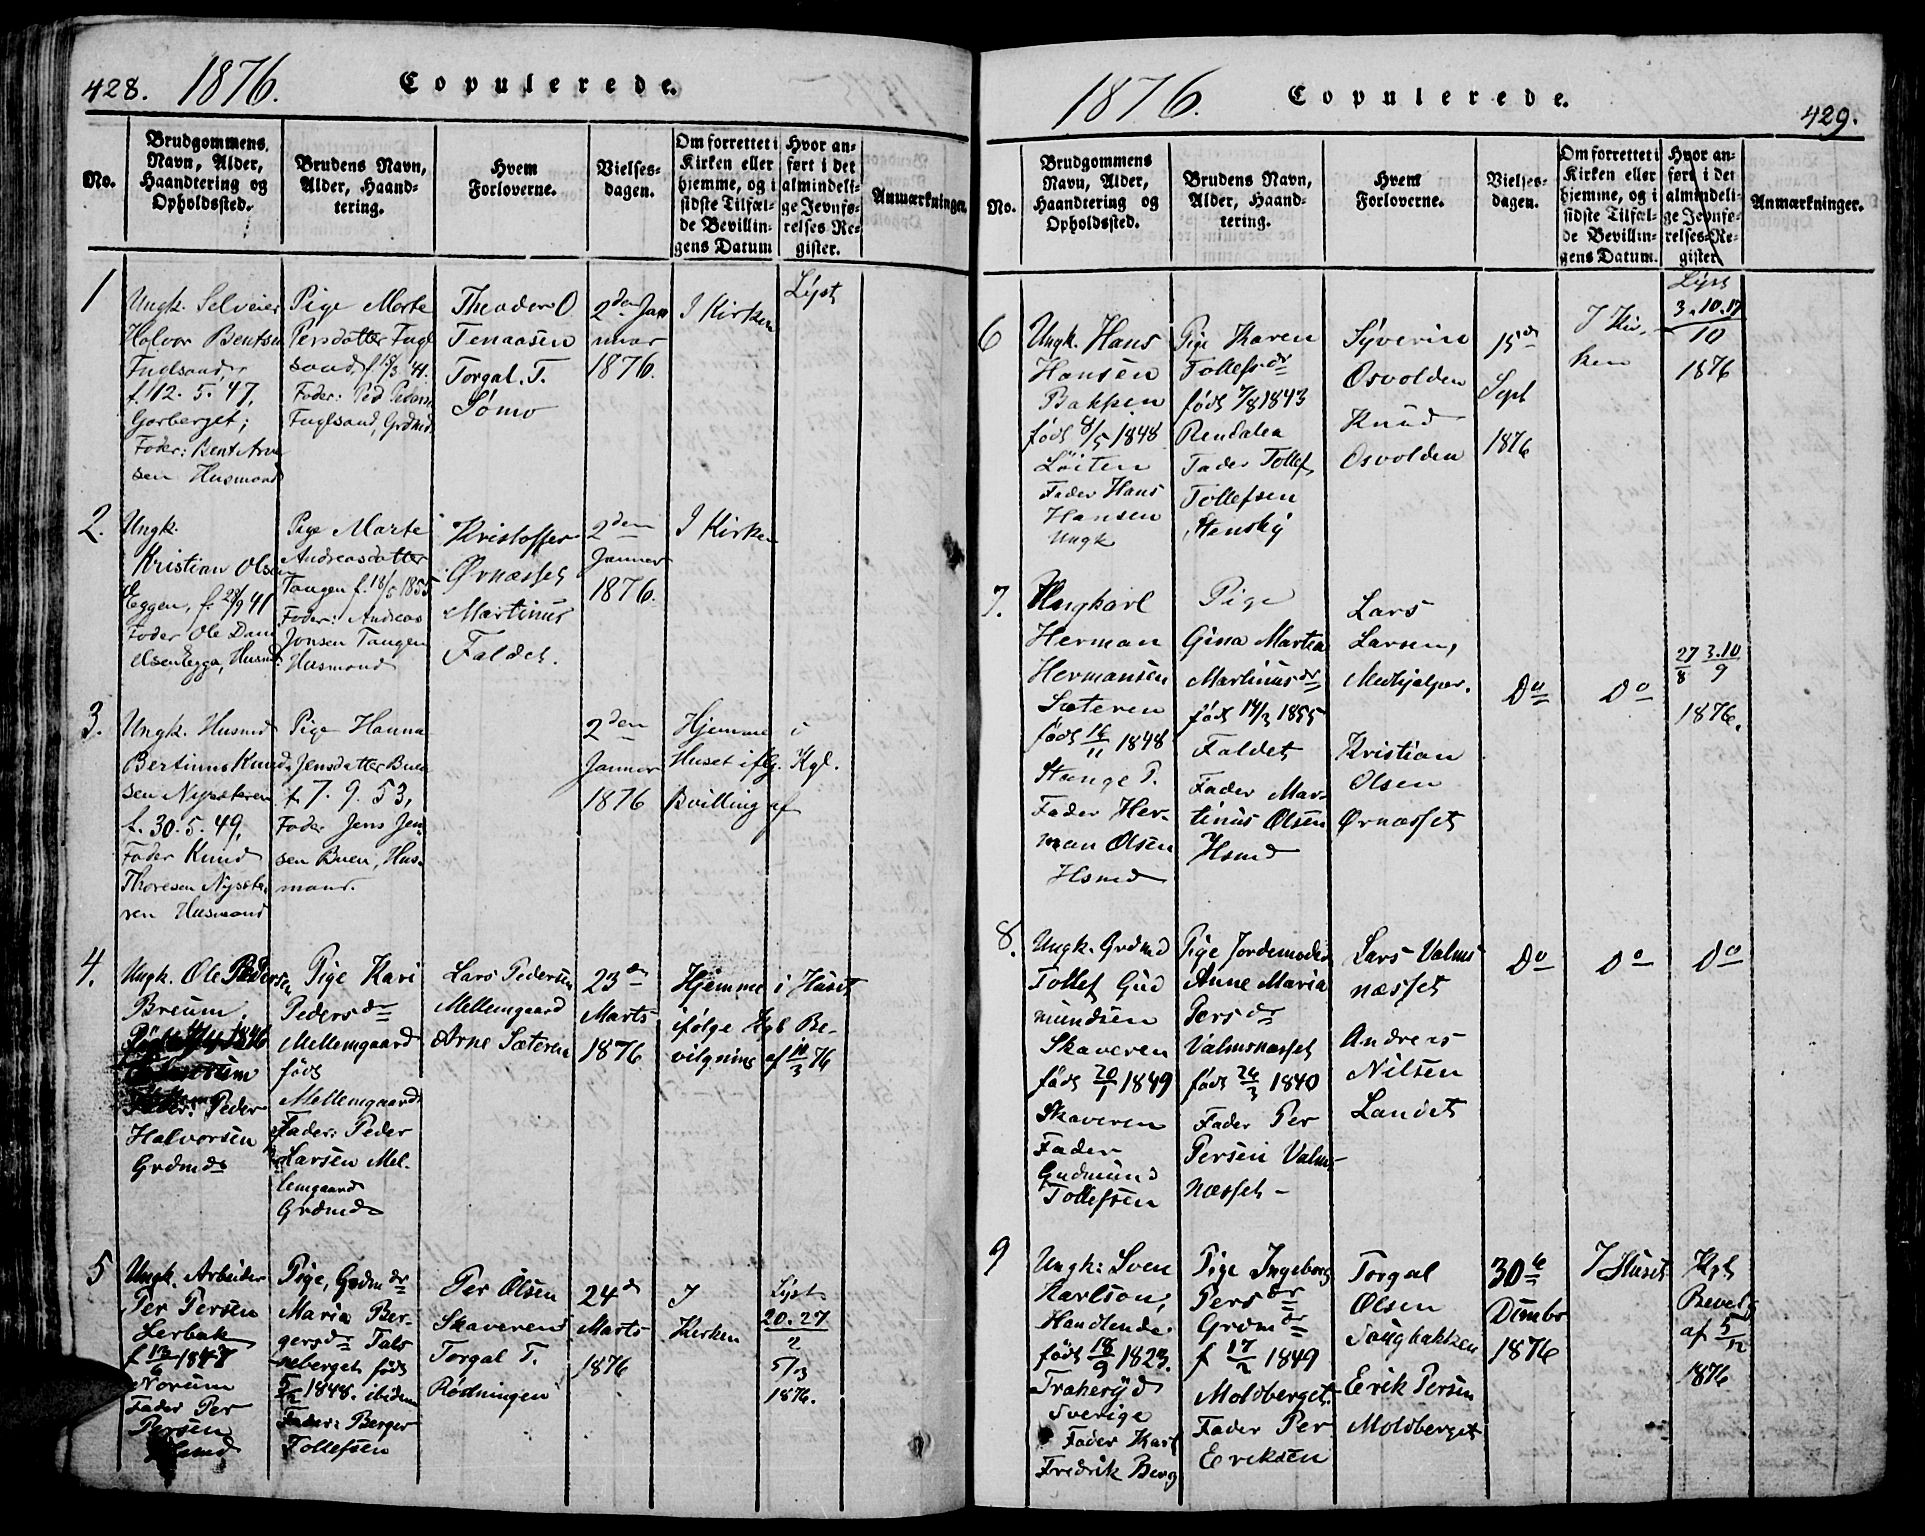 428. 1876. Copulerede.
No.
Brudgommens
Navn, Alder,
Haandtering og
Opholdssted.
Brudens Navn,
Alder, Haand-
tering.
Hvem
Forloverne.
Vielses-
dagen.
Om forrettet i
Kirken eller
hjemme, og i
sidste Tilfæl-
de Bevillin-
gens Datum
Hvor an-
ført i det
almindeli-
ge Jevnfø-
relses Re-
gister.
Anmærkninger.
1
Ungk. Selveier
Halvor Bentsen
Fuglsand
f. 12. 5. 47,
Garberget;
Fader: Bent Arne
sen Husmand
Pige Marte
Persdatter Fugl
sand, f. 18/3 41.
Fader: Ped Pedersen
Fuglsand, Grdmd.
Theodor O
Tenaasen
Torgal. T.
Sømo
2den Jan
nuar
1876.
I Kirken
Lyst
2.
Ungk.
Kristian Olsen
Eggen, f. 28/9 41
Fader Ole Dani
elsen Egga, Husmd
Pige Marte
Andreasdatter
Tangen f. 18/5 1855
Fader: Andreas
Jonsen Tangen
Husmand
Kristoffer
Ørnæsset
Martinus
Faldet.
2den
Januar
1876.
I Kirken
3.
Ungk. Husmd
Bertinus Knud
sen Nysæteren
f. 30. 5. 49,
Fader Knud
Thoresen Nysæte
ren Husmand
Pige Hanna
Jensdatter Buen
f. 7. 9. 53,
Fader Jens Jen
sen Buen, Hus-
mand.
2den
Januar
1876
Hjemme i
Huset iflg. Kgl.
Bvilling af
4.
Ungk. Ole Pedersen
Breum,
Fader: Peder
Halvorsen
Grdmd
Pige Kari
Pedersdr
Mellemgaard
født
Mellemgaard
Fader: Peder
Larsen Mel-
lemgaard
Grdmd
Lars Pedersen
Mellemgaard
Arne Sæteren
23de
Marts
1876
Hjemme i Huset
ifølge Kgl Be-
vilgning af 10/3 76
5
Ungk. Arbeider
Per Persen
Lerbak
f 13/6 1847
Norum
Fader Per
Persen
Hsmd
Pige, Grdmdr
Maria Ber-
gersdr Tals
neberget født
1848. ibidem
Fader: Berger
Tollefsen
Per Olsen
Skaveren
Torgal T.
Rødningen
24d
Marts
1876
I
Kirken
Lyst
20. 27
2
5/3
1876.
1876. Copulerede. 429.
No.
Brudgommens
Navn, Alder,
Haandtering og
Opholdssted.
Brudens Navn,
Alder, Haand-
tering.
Hvem
Forloverne.
Vielses-
dagen.
Om forrettet i
Kirken eller
hjemme, og i
sidste Tilfæl-
de Bevillin-
gens Datum.
Hvor an-
ført i det
almindeli-
ge Jevnfø-
relses-Re-
gister
Anmærkninger.
6
Ungk. Hans
Hansen
Bakken
født 8/5 1848
Löiten
Fader Hans
Hansen
Ungk
Pige Karen
Tollefsdr
født 7/8 1843
Rendalen
Fader Tollef
Tollefsen
Stensby
Syverin
Osvolden
Knud
Osvolden
15de
Sept
1876
I Kir-
ken
Lyst
3.10.17
10
1876
7.
Ungkarl
Herman
Hermansen
Sæteren
født 16/11 1848
Stange P.
Fader Her-
man Olsen
Hsmd
Pige
Gina Martea
Martinusdr
født 14/3 1855
Faldet
Fader Mar-
tinus Olsen
Hsmd
Lars
Larsen,
Medhjælper.
Kristian
Olsen
Ørnæsset
Do
Do
27/8 3.10/9
1876.
8.
Ungk. Grdmd
Tollef Gud
mundsen
Skaveren
født 20/1 1849
Skaveren
Fader
Gudmund
Tollefsen
Pige Jordemoder
Anne Maria
Persdr
Valmsnæsset
født 26/3 1840
Fader Per
Persen Valms-
næsset -
Lars Valms
næsset
Andreas
Nilsen
Landet
Do
Do
Do
9
Ungk: Sven
Karlson,
Handlende.
født 18/9 1823.
Traheryd
Sverige
Fader Karl
Fredrik Berg
Pige Ingeborg
Persdr
Grdmdr
f 17/2 1849
Moldberget.
Fader Per
Eriksen
Torgal
Olsen
Haugbakken
Erik Persen
Moldberget
30te
Dcmbr
1876
I Huset
Kgl
Bevilg
af 5/12
1876